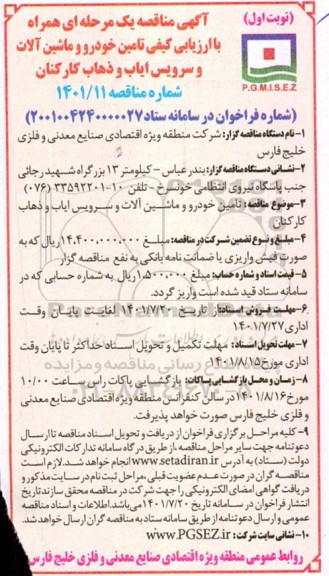 (نوبت اول)
آگهی مناقصه یک مرحله ای همراه
با ارزیابی کیفی تامین خودرو و ماشین آلات
و سرویس ایاب و ذهاب کارکنان
P.G.M.I.S.E.Z
شماره مناقصه ۱۴۰۱/۱۱
(شماره فراخوان در سامانه ستاد ۲۰۰۱۰۰۴۲۴۰۰۰۰۰۲۷)
۱-نام دستگاه مناقصه گزار: شرکت منطقه ویژه اقتصادی صنایع معدنی و فلزی
خلیج فارس
۲-نشانی دستگاه مناقصه گزار: بندرعباس - کیلومتر ۱۳ بزرگراه شهید رجائی
جنب پاسگاه نیروی انتظامی خونسرخ - تلفن ۱۰-۳۳۵۹۲۲۰۱ (۰۷۶)
۳-موضوع مناقصه: تامین خودرو و ماشین آلات و سرویس ایاب و ذهاب
کارکنان
۴-مبلغ و نوع تضمین شرکت در مناقصه: مبلغ ۱۴.۴۰۰.۰۰۰.۰۰۰ ریال که به
صورت فیش واریزی یا ضمانت نامه بانکی به نفع مناقصه گزار
۵-قیمت اسناد و شماره حساب: مبلغ ۱.۵۰۰.۰۰۰ ریال به شماره حسابی که در
سامانه ستاد قید شده است واریز گردد.
۶-مهلت فروش اسناد: از تاریخ ۱۴۰۱/۷/۲۰ لغایت پایان وقت
اداری ۱۴۰۱/۷/۲۷
۷-مهلت تحویل اسناد: مهلت تکمیل و تحویل اسناد حداکثر تا پایان وقت
اداری مورخ ۱۴۰۱/۸/۱۵
۸-زمان و محل بازگشایی پاکات: بازگشایی پاکات راس ساعت ۱۰/۰۰
مورخ ۱۴۰۱/۸/۱۶ در سالن کنفرانس منطقه ویژه اقتصادی صنایع معدنی
و فلزی خلیج فارس صورت خواهد پذیرفت.
۹-کلیه مراحل برگزاری فراخوان از دریافت و تحویل اسناد مناقصه تا ارسال
دعوتنامه جهت سایر مراحل مناقصه، از طریق درگاه سامانه تدارکات الکترونیکی
دولت (ستاد) به آدرس www.setadiran.ir انجام خواهد شد. لازم است
مناقصه گران در صورت عدم عضویت قبلی، مراحل ثبت نام در سایت مذکور و
دریافت گواهی امضای الکترونیکی را جهت شرکت در مناقصه محقق سازند تاریخ
انتشار فراخوان در سامانه تاریخ ۱۴۰۱/۷/۲۰ می باشد. اطلاعات و اسناد مناقصه
عمومی و ارسال دعوتنامه از طریق سامانه ستاد به مناقصه گران ارسال خواهد شد.
۱۰-نشانی سایت شرکت: www.PGSEZ.ir
روابط عمومی منطقه ویژه اقتصادی صنایع معدنی و فلزی خلیج فارس